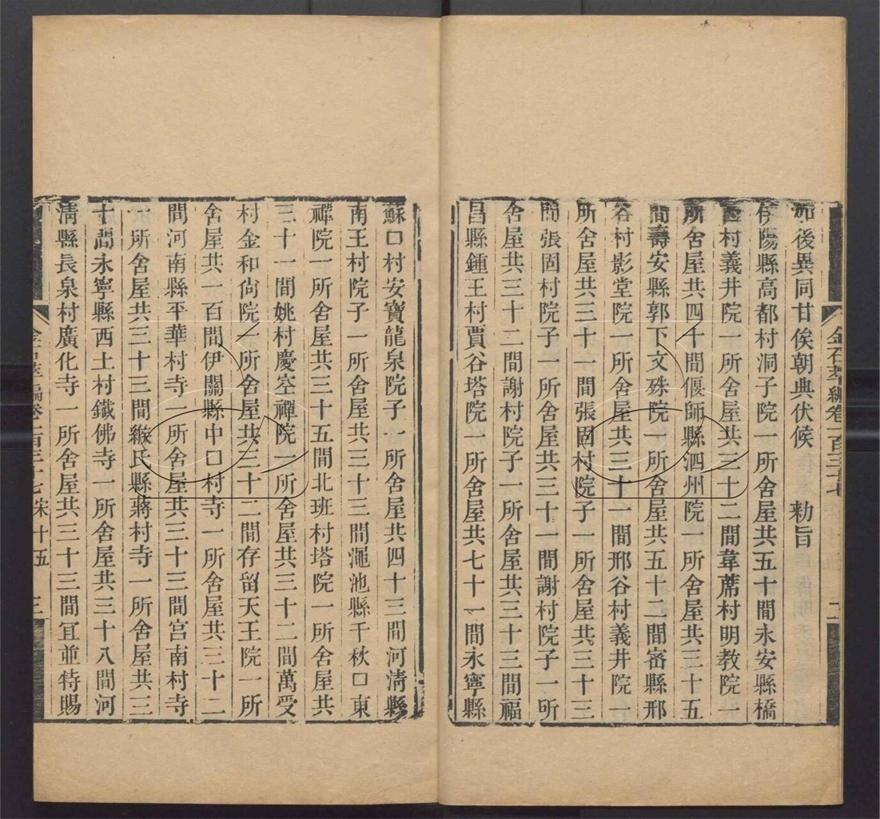 如後異同甘俟朝典伏候　勑旨
伊陽縣高都村洞子院一所舍屋共五十間永安縣橋
西村義井院一所舍屋共三十二間韋蓆村明教院一
所舍屋共四十間偃師縣泗州院一所舍屋共三十五
間壽安縣郭下文殊院一所舍屋共五十二間密縣邢
谷村影堂院一所舍屋共三十一間邢谷村義井院一
所舍屋共三十一間張固村院子一所舍屋共三十三
間張固村院子一所舍屋共三十一間謝村院子一所
舍屋共三十二間謝村院子一所舍屋共三十三間福
昌縣鍾王村賈谷塔院一所舍屋共七十一間永寧縣
金石萃編卷一百三十七
二
蘇口村安寶龍泉院子一所舍屋共四十三間河清縣
南王村院子一所舍屋共三十三間澠池縣千秋口東
禪院一所舍屋共三十五間北班村塔院一所舍屋共
三十一間姚村慶空禪院一所舍屋共三十二間萬受
村金和尙院一所舍屋共三十二間存留天王院一所
舍屋共一百間伊闕縣中口村寺一所舍屋共三十二
間河南縣平華村寺一所舍屋共三十三間宮南村寺
一所舍屋共三十三間緱氏縣蔣村寺一所舍屋共三
十間永寧縣西土村鐵佛寺一所舍屋共三十八間河
淸縣長泉村廣化寺一所舍屋共三十三間宜並特賜
金石萃編卷一百三十七 宋十五
三